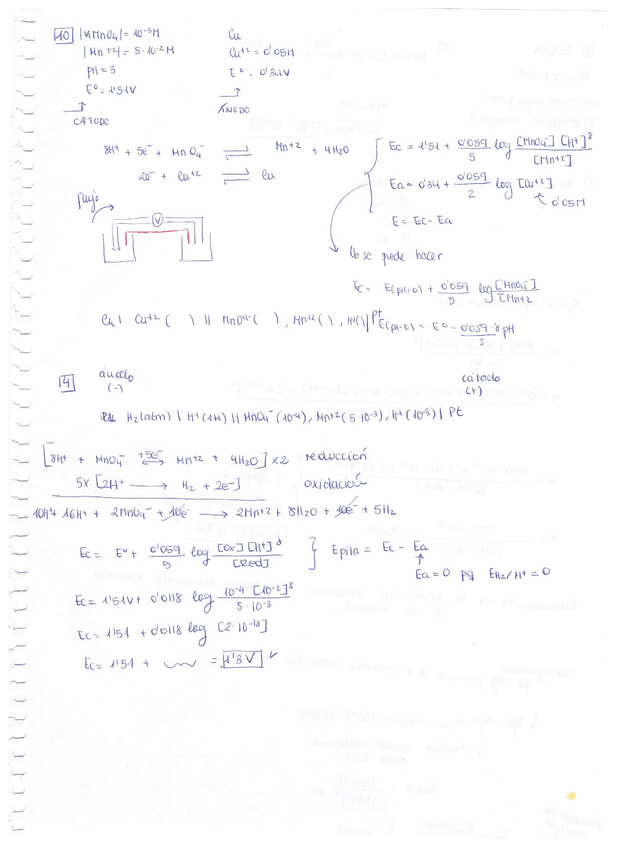 10 |KMnO4| = 10⁻³M Cu
|Mn⁺²| = 5·10⁻²M Cu⁺² = 0'05M
pH = 3 E° = 0'34V
E° = 1'51V
CÁTODO ÁNODO
8H⁺ + 5e⁻ + MnO4⁻ ⇌ Mn⁺² + 4H2O
2e⁻ + Cu⁺² ⇌ Cu
Ec = 1'51 + 0'059/5 log [MnO4⁻][H⁺]⁸/[Mn⁺²]
Ea = 0'34 + 0'059/2 log [Cu⁺²]
0'05M
E = Ec - Ea
flujo
V
se puede hacer
Ec = E(pH=0) + 0'059/5 log [MnO4⁻]/[Mn⁺²
Cu | Cu⁺² ( ) || MnO4⁻ ( ), Mn⁺² ( ), H⁺( ) | Pt
E(pH=0) = E° - 0'059·8 pH/5
4 ánodo cátodo
(-) (+)
H2 (1atm) | H⁺ (1M) || MnO4⁻ (10⁻⁴), Mn⁺² (5·10⁻³), H⁺ (10⁻²) | Pt
[8H⁺ + MnO4⁻ +5e⁻ ⇌ Mn⁺² + 4H2O] x2 reducción
5x [2H⁺ → H2 + 2e⁻] oxidación
10H⁺ 16H⁺ + 2MnO4⁻ + 10e⁻ → 2Mn⁺² + 8H2O + 10e⁻ + 5H2
Ec = E° + 0'059/5 log [Ox][H⁺]⁸/[Red] } Epila = Ec - Ea
Ea = 0 pq EH2/H⁺ = 0
Ec = 1'51V + 0'0118 log 10⁻⁴ [10⁻²]⁸/5·10⁻³
Ec = 1'51 + 0'0118 log [2·10⁻¹⁸]
Ec = 1'51 + = 1'3V